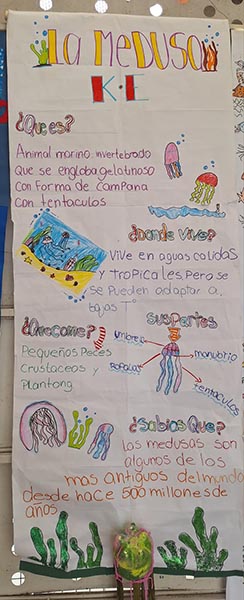 La MeDUSa
K E
¿Que es?
Animal marino invertebrado
que se engloba gelatinoso
con forma de campana
con tentaculos
¿Donde Vive?
ViVe en aguas calidas
y TroPicales Pero se
se Pueden adaptar a
bajas T°
¿Que come?
Pequeños Peces
crustaceos y
Plantong
sus Partes
umbrela
manubrio
tentaculos
¿Sabias Que?
las medusas son
algunos de los
mas antiguos del mundo
desde hace 500 millones de
años